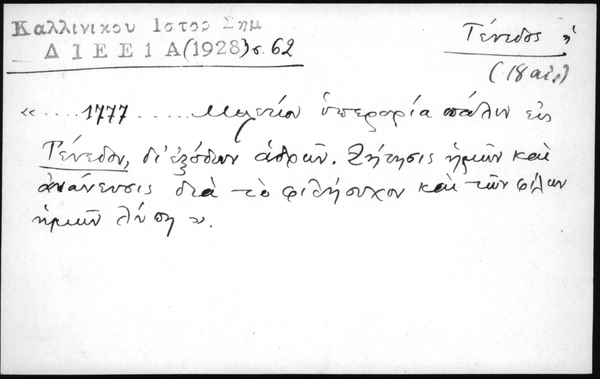 Καλλινικου Ιστορ Σημ
ΔΙΕΕ 1 Α (1928) σ. 62
Τένεδος
(18 αἰ.)
« .... 1777 ..... Μελετίου ὑπεροριά πάλιν εἰς
Τένεδον, δι' ἐξόδων ἁδρῶν. Ζήτησις ἡμῶν καὶ
ἀνάνευσις διὰ τὸ φιλήσυχον καὶ τῶν φίλων
ἡμῶν λύπη ».